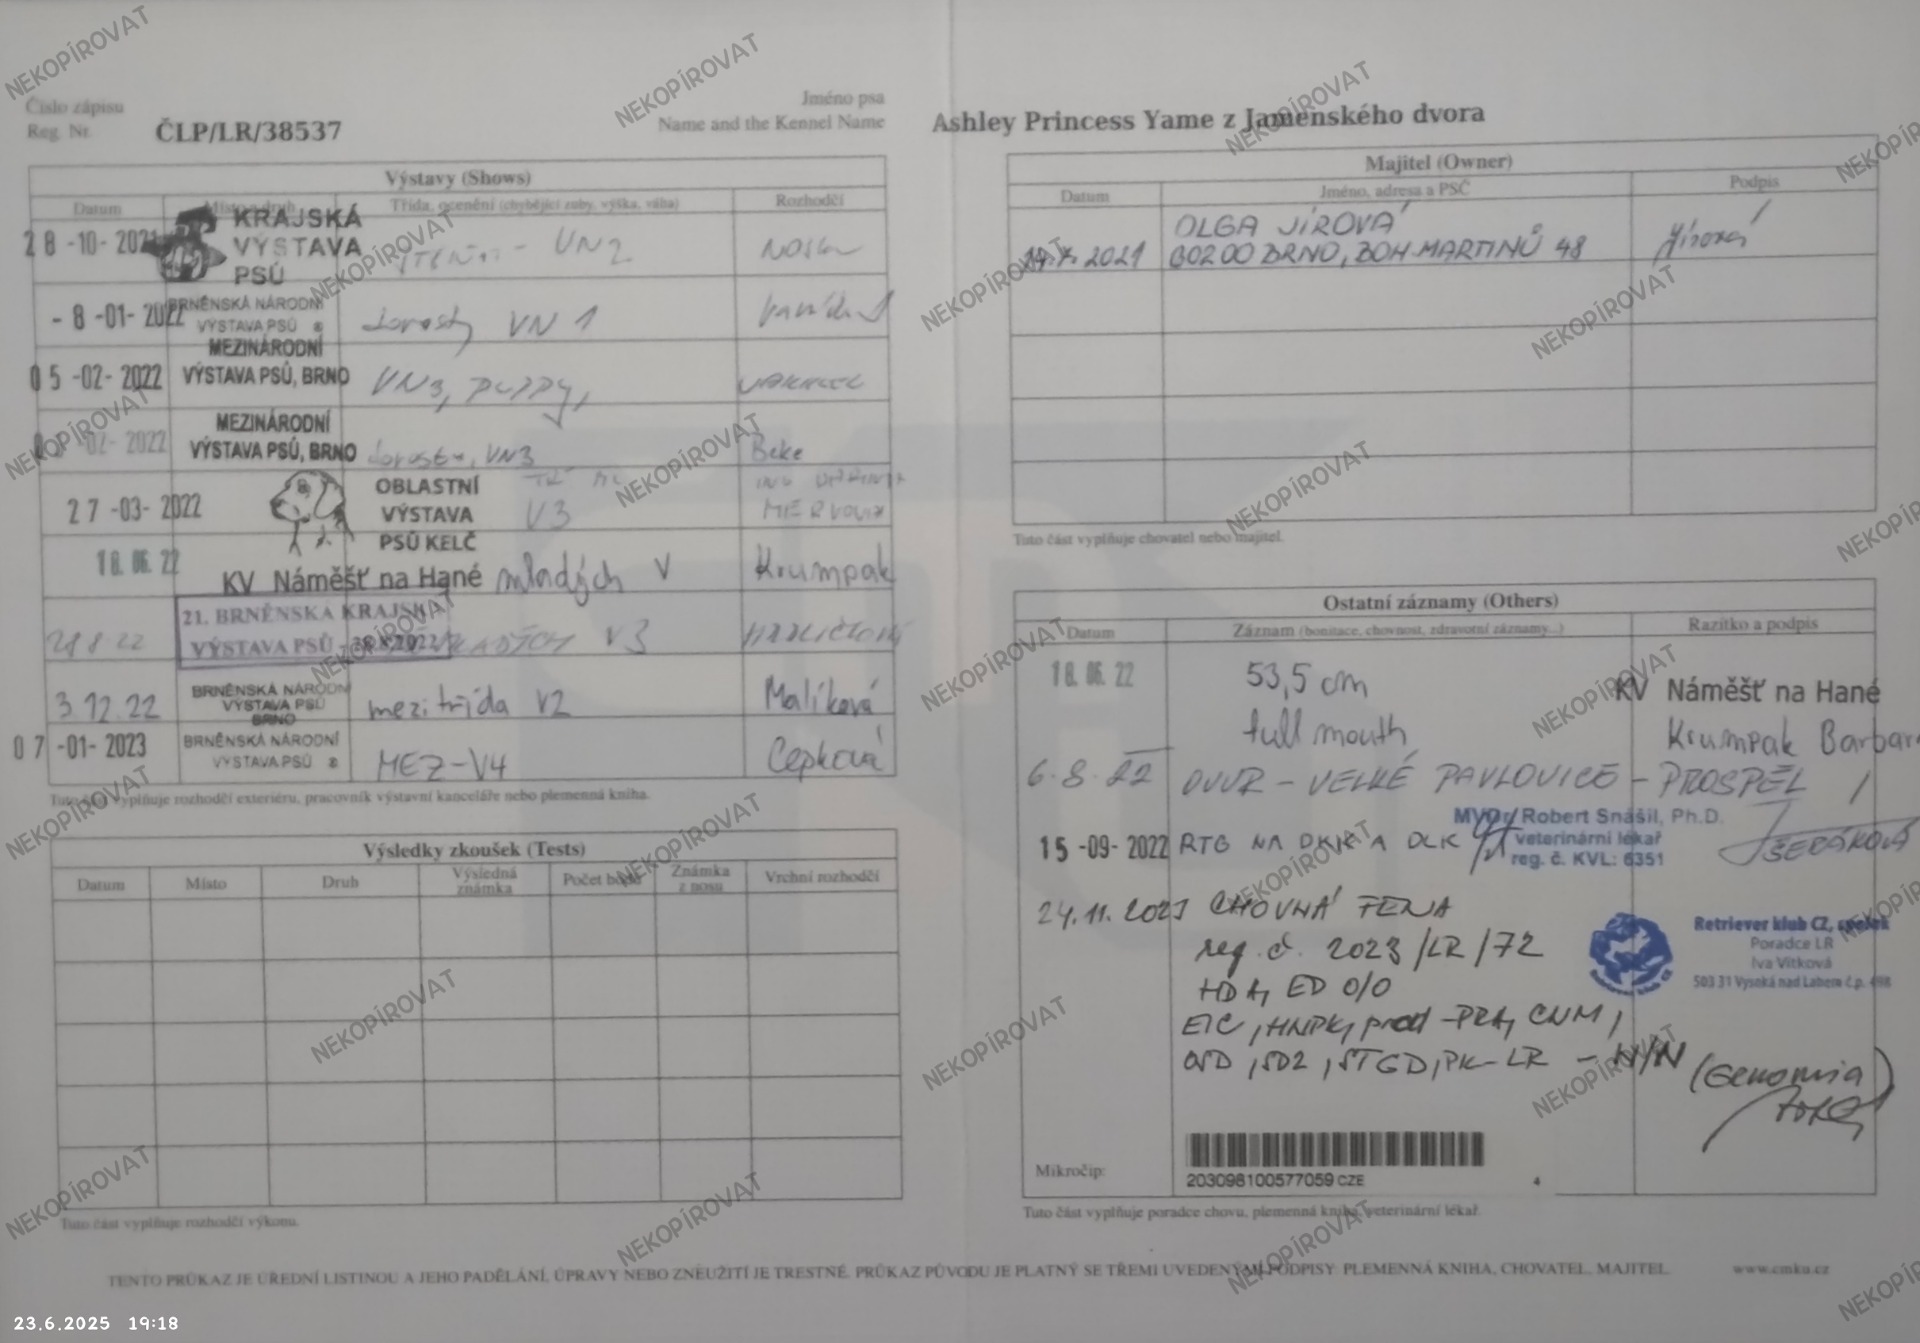 Číslo zápisu
Reg. Nr.
ČLP/LR/38537
Jméno psa
Name and the Kennel Name
Ashley Princess Yame z Jamenského dvora
Výstavy (Shows)
Datum Místo a druh Třída, ocenění (chybějící zuby, výška, váha) Rozhodčí
28 -10- 2021 KRAJSKÁ VÝSTAVA PSŮ VN2
- 8 -01- 2022 BRNĚNSKÁ NÁRODNÍ VÝSTAVA PSŮ dorostu VN 1
05 -02- 2022 MEZINÁRODNÍ VÝSTAVA PSŮ, BRNO VN3, PUPPY,
-02- 2022 MEZINÁRODNÍ VÝSTAVA PSŮ, BRNO dorostu, VN3 Beke
27 -03- 2022 OBLASTNÍ VÝSTAVA PSŮ KELČ V3
18. 06. 22 KV Náměšť na Hané mladých V Krumpak
28 8 22 21. BRNĚNSKÁ KRAJSKÁ VÝSTAVA PSŮ 28.8.2022 MLADÝCH V3
3.12.22 BRNĚNSKÁ NÁRODNÍ VÝSTAVA PSŮ BRNO mezitřída V2 Malíková
07 -01- 2023 BRNĚNSKÁ NÁRODNÍ VÝSTAVA PSŮ MEZ-V4 Cepková
Tuto část vyplňuje rozhodčí exteriéru, pracovník výstavní kanceláře nebo plemenná kniha.
Výsledky zkoušek (Tests)
Datum Místo Druh Výsledná známka Počet bodů Známka z nosu Vrchní rozhodčí
Tuto část vyplňuje rozhodčí výkonu.
Majitel (Owner)
Datum Jméno, adresa a PSČ Podpis
OLGA JÍROVÁ
2021 60200 BRNO, BOH.MARTINŮ 48 Jírová
Tuto část vyplňuje chovatel nebo majitel.
Ostatní záznamy (Others)
Datum Záznam (bonitace, chovnost, zdravotní záznamy...) Razítko a podpis
18. 06. 22 53,5 cm KV Náměšť na Hané
full mouth Krumpak Barbar
6.8.22 OVVR - VELKÉ PAVLOVICE - PROSPĚL
MVDr. Robert Snášil, Ph.D.
veterinární lékař
reg. č. KVL: 6351
15 -09- 2022 RTG NA DKK A DLK
24.11.2023 CHOVNÁ FENA
reg. č. 2023/LR/72
HD A, ED 0/0
EIC, HNPK, prcd-PRA, CNM,
OSD, SD2, STGD, PK-LR - N/N (Genomia)
Retriever klub CZ, spolek
Poradce LR
Iva Vítková
503 31 Vysoká nad Labem č.p. 498
Mikročip:
203098100577059 CZE
4
Tuto část vyplňuje poradce chovu, plemenná kniha, veterinární lékař.
TENTO PRŮKAZ JE ÚŘEDNÍ LISTINOU A JEHO PADĚLÁNÍ, ÚPRAVY NEBO ZNEUŽITÍ JE TRESTNÉ. PRŮKAZ PŮVODU JE PLATNÝ SE TŘEMI UVEDENÝMI PODPISY: PLEMENNÁ KNIHA, CHOVATEL, MAJITEL.
www.cmku.cz
NEKOPÍROVAT
23.6.2025 19:18